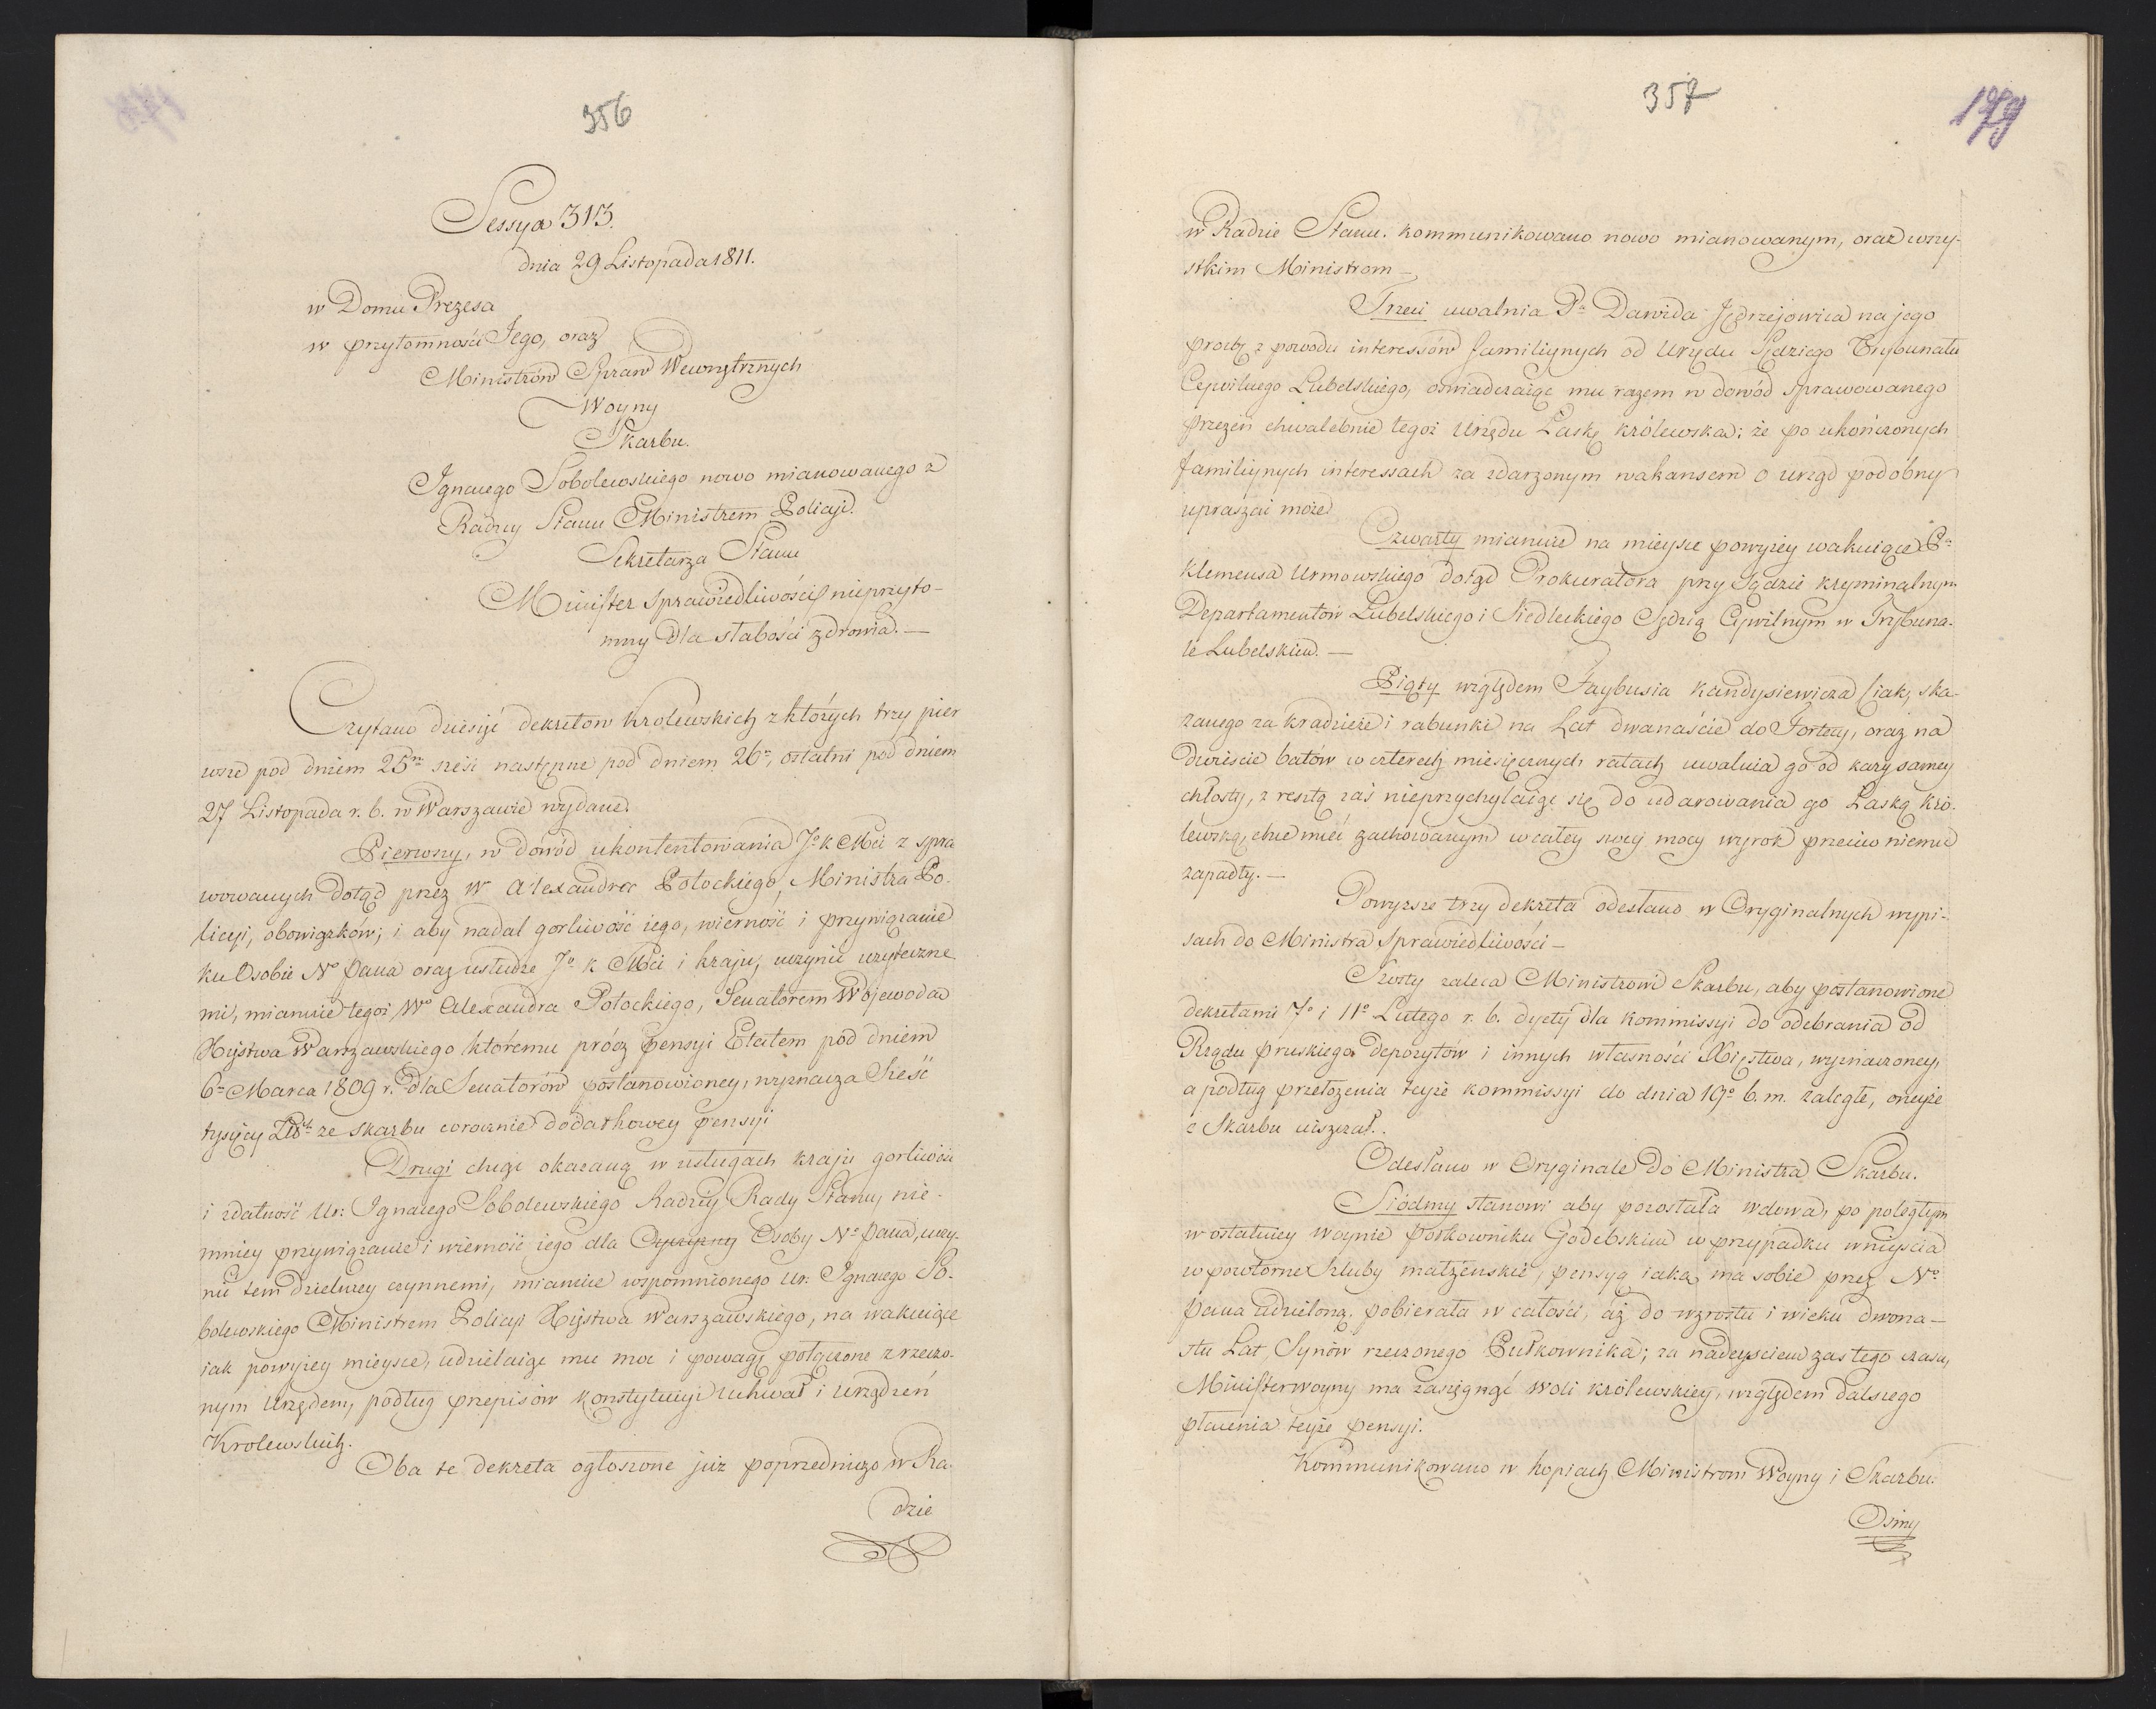 356
Sessya 313.
dnia 29 Listopada 1811.
w Domu Prezesa
w przytomności Jego, oraz
Ministrów Spraw Wewnętrznych
Woyny
Skarbu.
Ignacego Sobolewskiego nowo mianowanego z
Radzcy Stanu Ministrem Policyi.
Sekretarza Stanu
Minister Sprawiedliwości nieprzyto-
mny dla słabości zdrowia. —
Czytano dziesięć dekretow Krolewskich z których trzy pier
wsze pod dniem 25m sześć następne pod dniem 26o, ostatni pod dniem
27 Listopada r. b. w Warszawie wydane.
Pierwszy, w dowód ukontentowania Jo K Mci z spra
wowanych dotąd przez W Alexandra Potockiego, Ministra Po-
licyi, obowiązków; i aby nadal gorliwość iego, wierność i przywiązanie
ku Osobie No Pana oraz usłudze Jo K Mci i kraju, uczynić użyteczne
mi, mianuie tegoż Wo Alexandra Potockiego, Senatorem Wojewodą
Xięstwa Warszawskiego któremu prócz pensyi Etatem pod dniem
6o Marca 1809 r. dla Senatorów postanowioney, wyznacza Sześć
tysięcy Złt ze skarbu corocznie dodatkowey pensyi
Drugi chcąc okazaną w usługach kraju gorliwość
i zdatność Ur: Ignacego Sobolewskiego Radzcy Rady Stanu, nie-
mniey przywiązanie i wierność iego dla Osoby No Pana, uczy-
nić tem dzielniey czynnemi, mianuie wspomnionego Ur: Ignacego So-
bolewskiego Ministrem Policyi Xięstwa Warszawskiego, na wakuiące
iak powyżey mieysce, udzielaiąc mu moc i powagę połączone z rzeczo-
nym Urzędem, podług przepisów Konstytucyi Uchwał i Urządzeń
Krolewskich.
Oba te dekreta ogłoszone już poprzedniczo w Ra-
dzie
357
179
w Radzie Stanu. kommunikowano nowo mianowanym, oraz wszy-
stkim Ministrom —
Trzeci uwalnia Po Dawida Jędrzejowicza na jego
prożbę z powodu interessów familiynych od Urzędu Sędziego Trybunału
Cywilnego Lubelskiego, oswiadczaiąc mu razem w dowód sprawowanego
przezeń chwalebnie tegoż Urzędu Łaskę królewską; że po ukończonych
familiynych interessach za zdarzonym wakansem o urząd podobny
upraszać może
Czwarty mianuie na mieysce powyżey wakuiące Po
Klemensa Urmowskiego dotąd Prokuratora przy Sądzie kryminalnym
Departamentów Lubelskiego i Siedleckiego Sędzią Cywilnym w Trybuna-
le Lubelskim. —
Piąty względem Faybusia Kandysiewicza (iak, ska-
zanego za kradzieże i rabunki na Lat dwanaście do Fortecy, oraz na
dwieście batów w czterech miesięcznych ratach uwalnia go od kary samey
chłosty, z resztą zaś nieprzychylaiąc się do udarowania go Łaską kró-
lewską, chce mieć zachowanym w całey swey mocy wyrok przeciw niemu
zapadły. —
Powyższe trzy dekreta odesłano w Oryginalnych wypi-
sach do Ministra Sprawiedliwości —
Szósty zaleca Ministrowi Skarbu, aby postanowione
dekretami 7o i 11o Lutego r. b. dyety dla kommissyi do odebrania od
Rządu pruskiego depozytów i innych własności Xięstwa, wyznaczoney,
a podług przełożenia teyże kommissyi do dnia 19o b. m. zaległe, oneyże
z Skarbu uiszczał.
Odesłano w Oryginale do Ministra Skarbu.
Siódmy stanowi aby pozostała wdowa, po poległym
w ostatniey woynie Połkowniku Godebskim w przypadku wniyscia
w powtorne Szluby małżenskie, pensyą iaką ma sobie przez No
Pana udzieloną, pobierała w całości, aż do wzrostu i wieku dwona-
stu Lat, Synów rzeczonego Pułkownika; za nadeysciem zas tego czasu,
Minister woyny ma zasięgnąć woli królewskiey, względem dalszego
płacenia teyże pensyi.
Kommunikowano w kopiach Ministrom Woyny i Skarbu.
Osmy